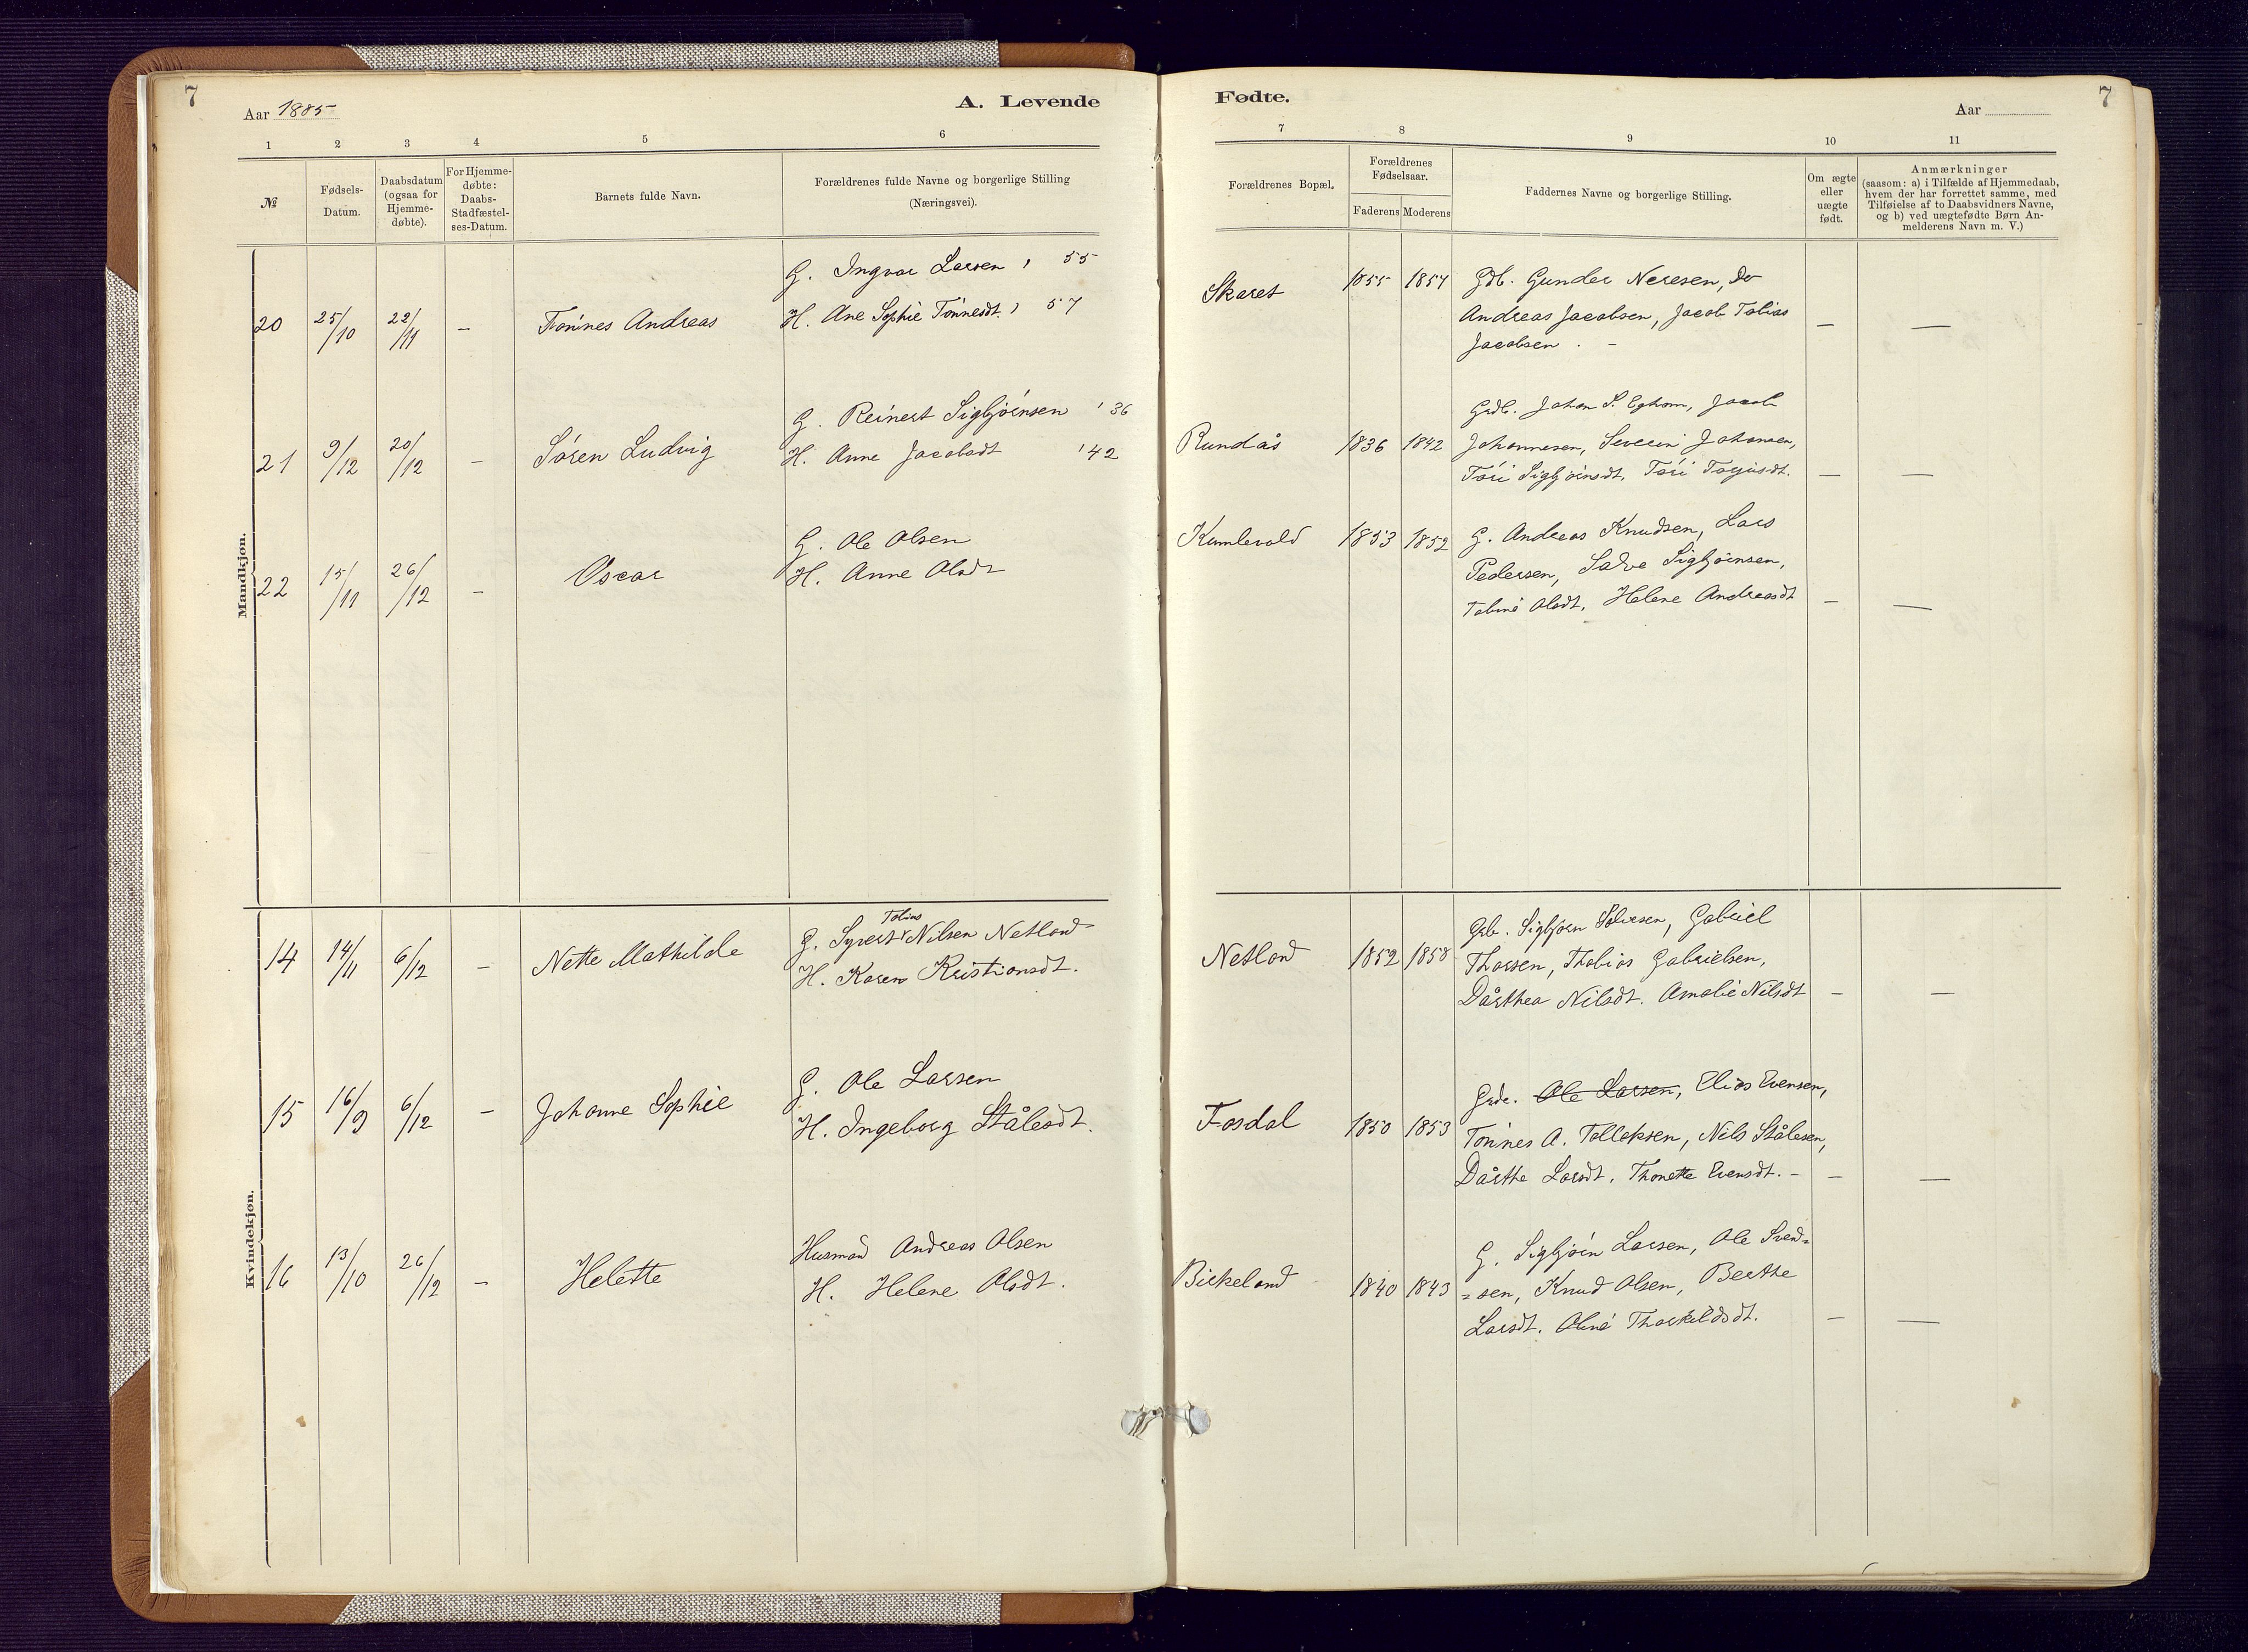 7
Aar 1885
A. Levende
1 2 3 4 5 6
№
Fødsels-
Datum.
Daabsdatum
(ogsaa for
Hjemme-
døbte).
For Hjemme-
døbte:
Daabs-
Stadfæstel-
ses-Datum.
Barnets fulde Navn.
Forældrenes fulde Navne og borgerlige Stilling
(Næringsvei).
Mandkjøn.
20 25/10 22/11 – Tønnes Andreas
G. Ingvar Larsen, 55
H. Ane Sophie Tønnesdt., 57
21 9/12 20/12 – Søren Ludvig
G. Reinert Sigbjørnsen '36
H. Anne Jacobsdt '42
22 15/11 26/12 – Oscar
G. Ole Olsen
H. Anne Olsdt
Kvindekjøn.
14 14/11 6/12 – Nette Mathilde
Tobias
G. Syvert Nilsen Netland
H. Karen Kristiansdt.
15 16/9 6/12 – Johanne Sophie
G. Ole Larsen
H. Ingeborg Stålesdt.
16 13/10 26/12 – Helette
Husmand Andreas Olsen
H. Helene Olsdt.
Fødte.
Aar
7
7 8 9 10 11
Forældrenes Bopæl.
Forældrenes
Fødselsaar.
Faderens Moderens
Faddernes Navne og borgerlige Stilling.
Om ægte
eller
uægte
født.
Anmærkninger
(saasom: a) i Tilfælde af Hjemmedaab,
hvem der har forrettet samme, med
Tilføielse af to Daabsvidners Navne,
og b) ved uægtefødte Børn An-
melderens Navn m. V.)
Skaret 1855 1857 Gdb. Gunder Neresen, Do
Andreas Jacobsen, Jacob Tobias
Jacobsen. – – —
Grdb. Johan S. Eghom, Jacob
Rundås 1836 1842 Johannesen, Severin Johansen,
Tori Sigbjørnsdt. Tori Torjusdt. – —
Kumlevold 1853 1852 G. Andreas Knudsen, Lars
Pedersen, Salve Sigbjørnsen,
Tobine Olsdt. Helene Andreasdt – —
Grb. Sigbjørn Salvesen, Gabriel
Netland 1852 1858 Thorsen, Thobias Gabrielsen,
Dårthea Nilsdt. Amalie Nilsdt – –
Grde. Ole Larsen, Elias Evensen,
Fosdal 1850 1853 Tønnes A. Tollaksen, Nils Stålesen,
Dårthe Larsdt. Thonette Evensdt. – – —
G. Sigbjørn Larsen, Ole Svend=
Birkeland 1840 1843 =sen, Knud Olsen, Berthe
Larsdt. Oline Thorkildsdt. – —